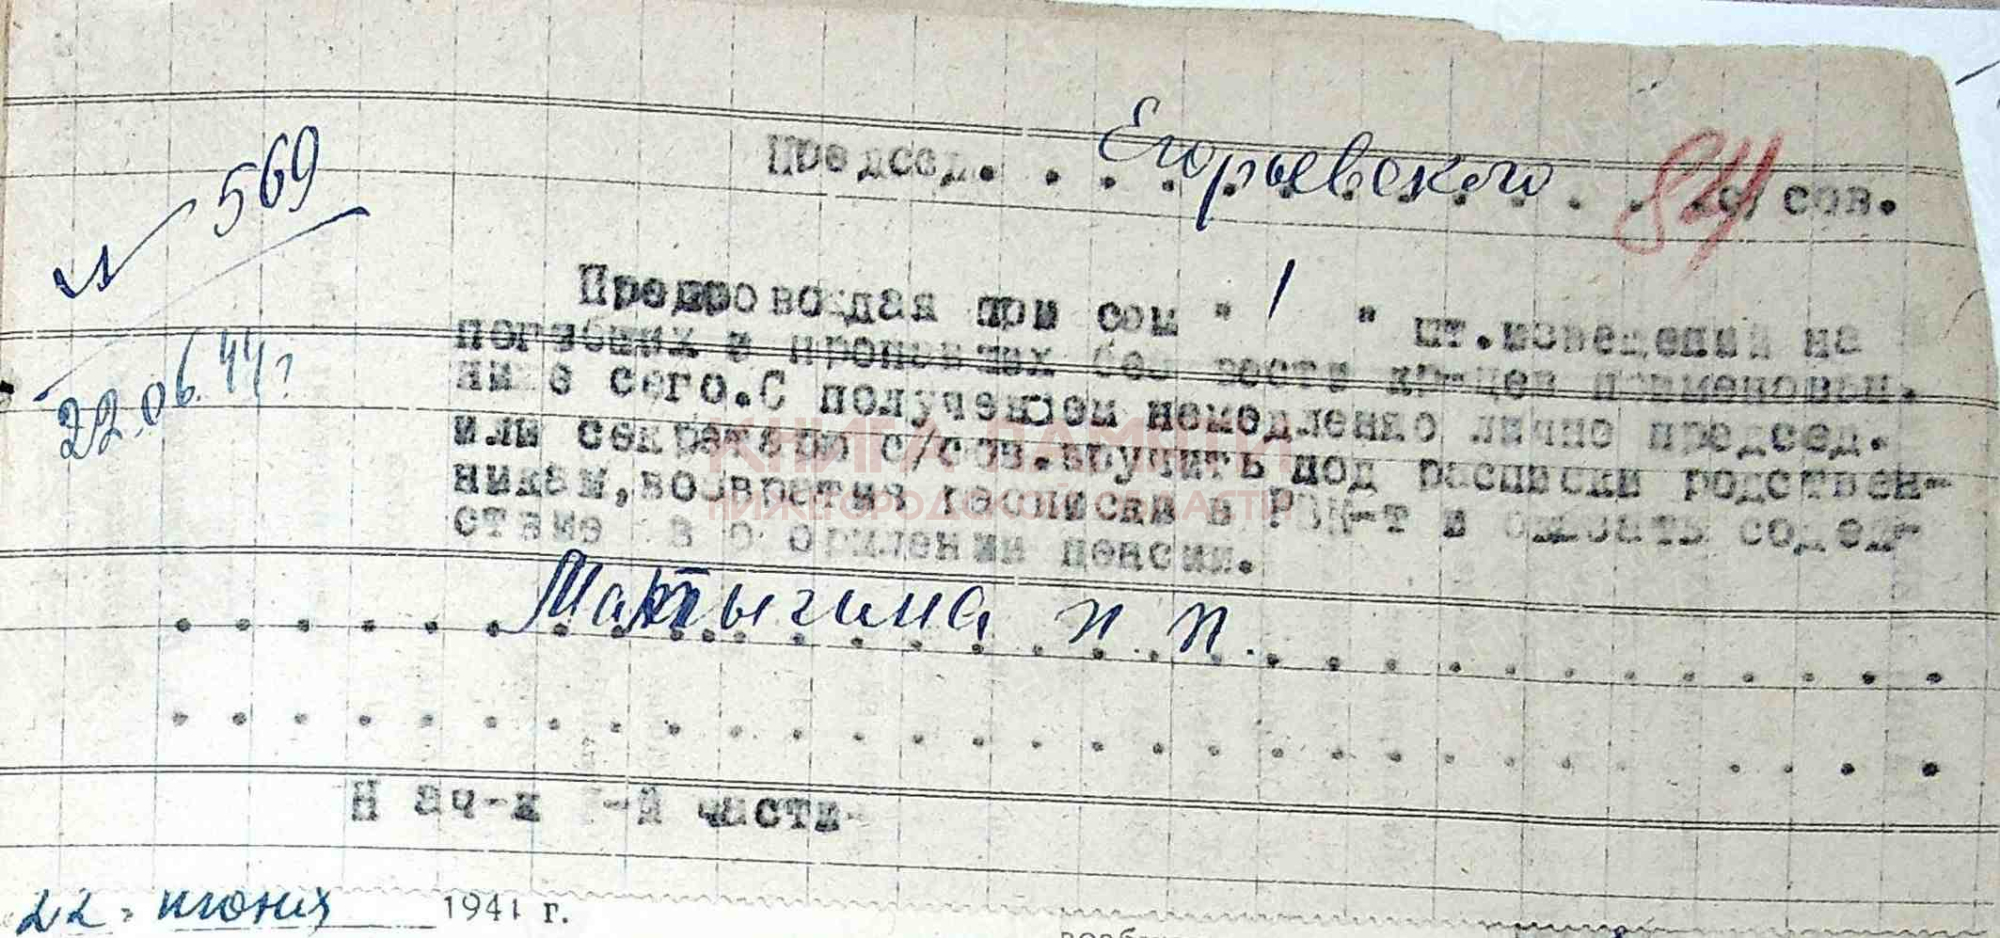 Председ. . Егорьевского . . с/сов.
84
№ 569
22.06.44 г
Препровождая при сем " 1 " шт.извещений на
погибших и пропавших без вести кр-цев поименован.
ниже сего.С получением немедленно лично председ.
или секретарю с/сов.вручить под расписки родствен-
никам,возвратив расписки в РВК-т и оказать содей-
ствие в оформлении пенсии.
Мартыгина П. П.
Нач-к -й части-
22. июня 1941 г.
КНИГА ПАМЯТИ
НИЖЕГОРОДСКОЙ ОБЛАСТИ